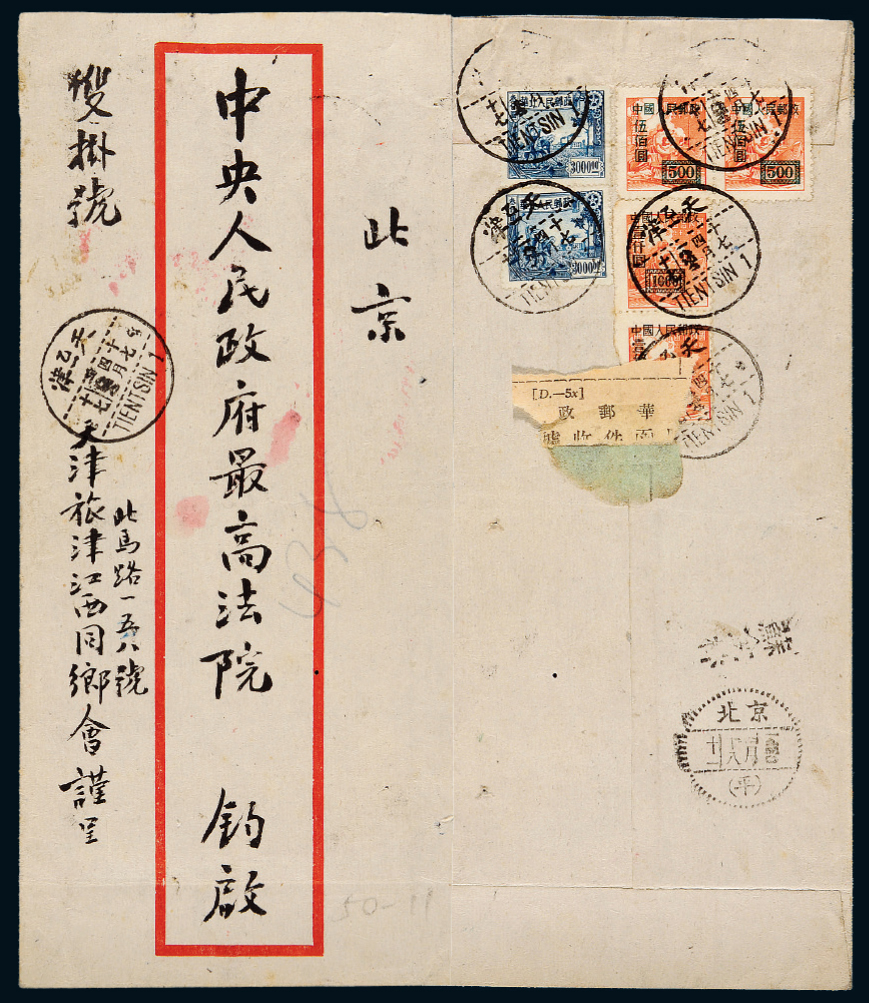 中國人民郵政
伍佰圓
500
中國人民郵政
伍佰圓
500
中國人民郵政
壹仟圓
1000
中國人民郵政
華北人民郵政
3000.00
華北人民郵政
3000.00
TIENTSIN 1
TIENTSIN 1
天津
TIENTSIN
天津
TIENTSIN 1
天
TIENTSIN 1
[D.—5x]
華郵政
件收據
北京
(平)
北京
中央人民政府最高法院 鈞啟
雙掛號
天津
TIENTSIN 1
北馬路一五八號
天津旅津江西同鄉會謹呈